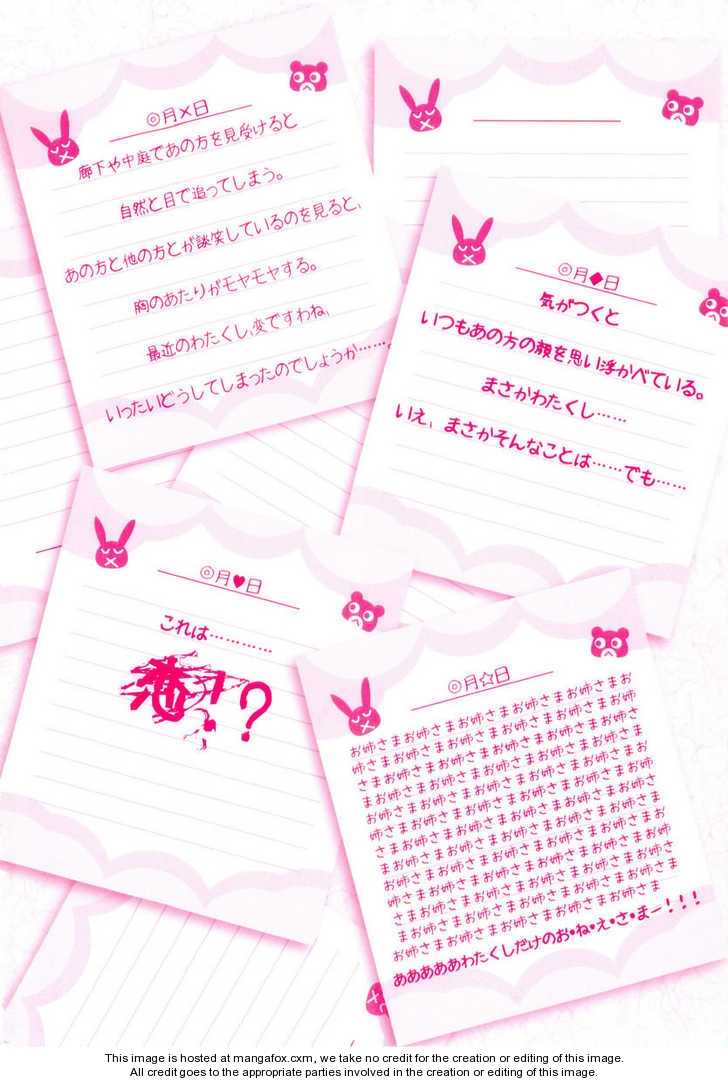 ◎月×日
廊下や中庭であの方を見受けると
自然と目で追ってしまう。
あの方と他の方とが談笑しているのを見ると、
胸のあたりがモヤモヤする。
最近のわたくし、変ですわね、
いったいどうしてしまったのでしょうか……。
◎月◆日
気がつくと
いつもあの方の顔を思い浮かべている。
まさかわたくし……
いえ、まさかそんなことは……でも……
◎月♥日
これは…………
!?
◎月☆日
お姉さまお姉さまお姉さまお姉さまお姉さまお
姉さまお姉さまお姉さまお姉さまお姉さまお姉
さまお姉さまお姉さまお姉さまお姉さまお姉さ
まお姉さまお姉さまお姉さまお姉さまお姉さま
お姉さまお姉さまお姉さまお姉さまお姉さまお
姉さまお姉さまお姉さまお姉さまお姉さまお姉
さまお姉さまお姉さまお姉さまお姉さまお姉さ
まお姉さまお姉さまお姉さまお姉さまお姉さま
お姉さまお姉さまお姉さまお姉さまお姉さまお
姉さまお姉さまお姉さまお姉さまお姉さまお姉さ
さまお姉さまお姉さまお姉さまお姉さまお姉さま
まお姉さまお姉さまお姉さまお姉さまお姉さま
お姉さまお姉さまお姉さまお姉さまお姉さま
あああああわたくしだけのお・ね・え・さ・まー!!!
This image is hosted at mangafox.cxm, we take no credit for the creation or editing of this image.
All credit goes to the appropriate parties involved in the creation or editing of this image.